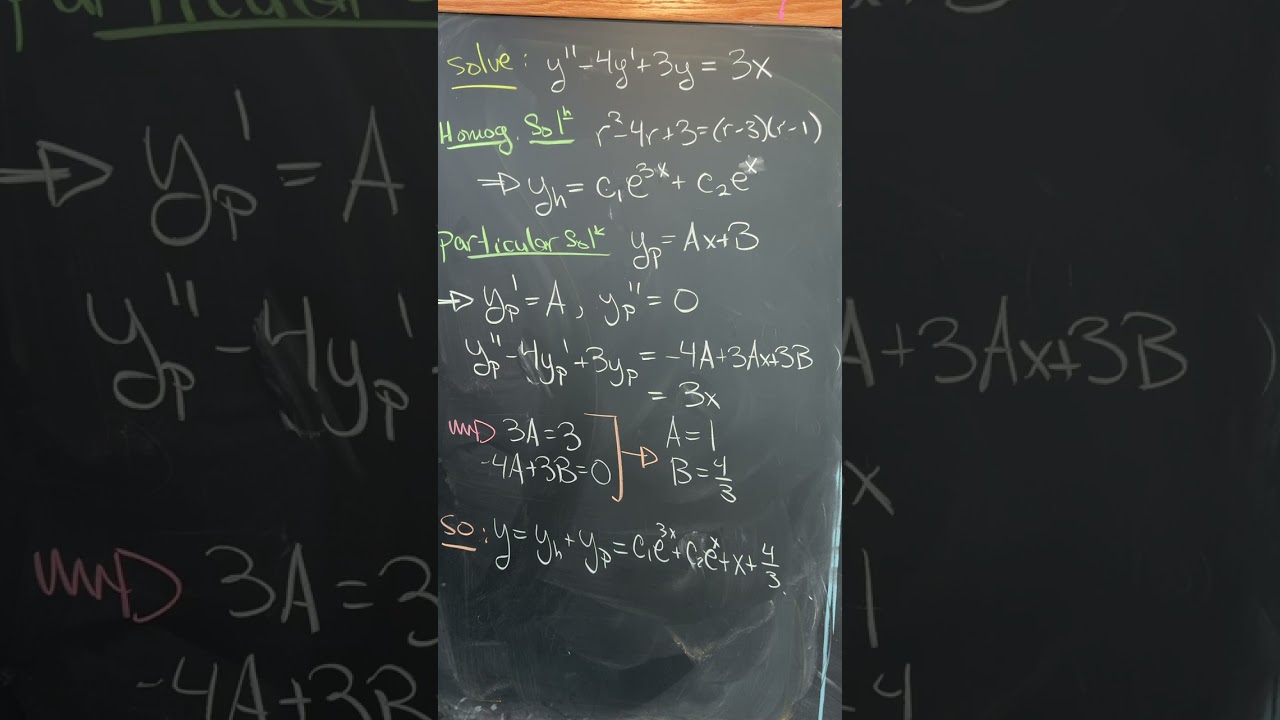 solve: y'' - 4y' + 3y = 3x
Homog. Solⁿ r² - 4r + 3 = (r-3)(r-1)
⇒ yₕ = c₁e^{3x} + c₂e^x
particular Solⁿ yₚ = Ax+B
⇒ yₚ' = A, yₚ'' = 0
yₚ'' - 4yₚ' + 3yₚ = -4A+3Ax+3B
= 3x
3A = 3
-4A+3B = 0
A = 1
B = 4/3
SO: y = yₕ + yₚ = c₁e^{3x} + c₂e^x + x + 4/3